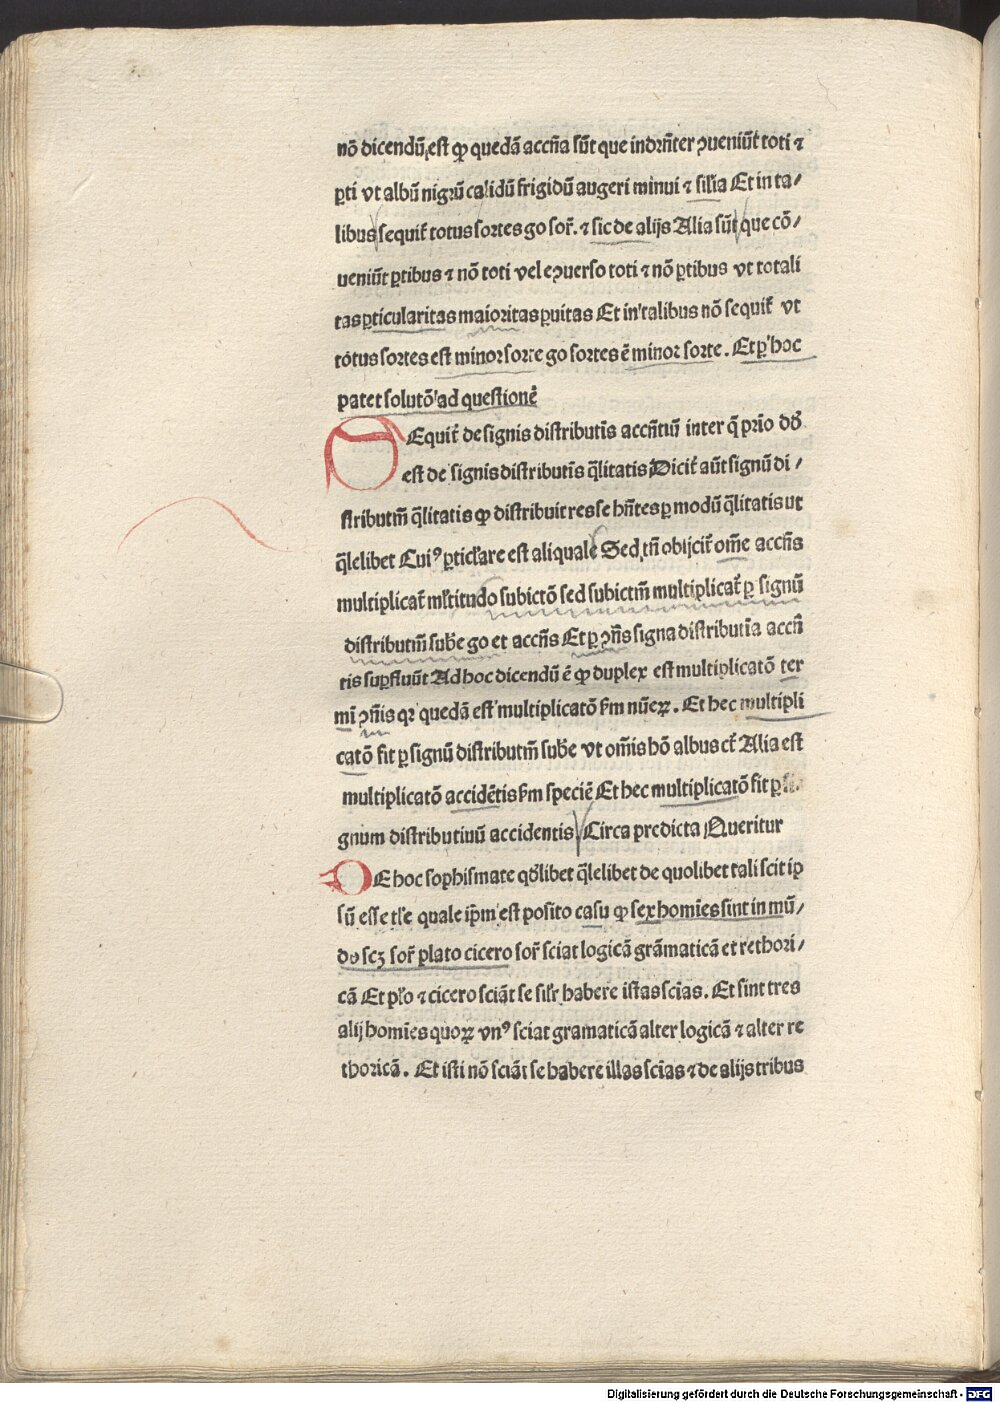 nō dicendū est ꝙ quedā accn̄a sūt que indrn̄ter ꝯueniūt toti ⁊
ꝑti vt albū nigrū calidū frigidū augeri minui ⁊ sil'ia Et in ta/
libus sequit̄ totus sortes go sor̄. ⁊ sic de alijs Alia sūt que cō/
ueniūt ꝑtibus ⁊ nō toti vel eꝯuerso toti ⁊ nō ꝑtibus vt totali
tas ꝑticularitas maioritas ꝑuitas Et in talibus nō sequit̄ vt
totus sortes est minor sorte go sortes ē minor sorte . Et ꝑ hoc
patet solutō ad questionē
Equit̄ de signis distributīs accn̄tiū inter q̄ prīo dō
est de signis distributīs q̄litatis Dicit̄ aūt signū di /
stributm̄ q̄litatis ꝙ distribuit res se hn̄tes ꝑ modū q̄litatis ut
q̄lelibet Cuiꝰ ꝑticl'are est aliquale Sed tn̄ obijcit̄ om̄e accn̄s
multiplicat̄ ml'titudo subictō sed subictm̄ multiplicat̄ ꝑ signū
distributm̄ sub'e go et accn̄s Et ꝑ ꝯn̄s signa distributīa accn̄
tis suꝑfluūt Ad hoc dicendū ē ꝙ duplex est multiplicatō ter
mī ꝯn̄is qꝛ quedā est multiplicatō ẜm nūeꝝ . Et hec multipli
catō fit ꝑ signū distributm̄ sub'e vt om̄is hō albus ct̄ Alia est
multiplicatō accidētis ẜm speciē Et hec multiplicatō fit ꝑ si
gnum distributiuū accidentis Circa predicta Queritur
DE hoc sophismate qd'libet q̄lelibet de quolibet tali scit ip
sū esse tl'e quale ip̄m est posito casu ꝙ sex homīes sint in mū/
do scꝫ sor̄ plato cicero sor̄ sciat logicā grāmaticā et rethori/
cā Et pl'o ⁊ cicero sciāt se sil'r habere istas scīas . Et sint tres
alij homīes quoꝝ vnꝰ sciat gramaticā alter logicā ⁊ alter re
thoricā . Et isti nō sciāt se habere illas scīas ⁊ de alijs tribus
Digitalisierung gefördert durch die Deutsche Forschungsgemeinschaft - DFG